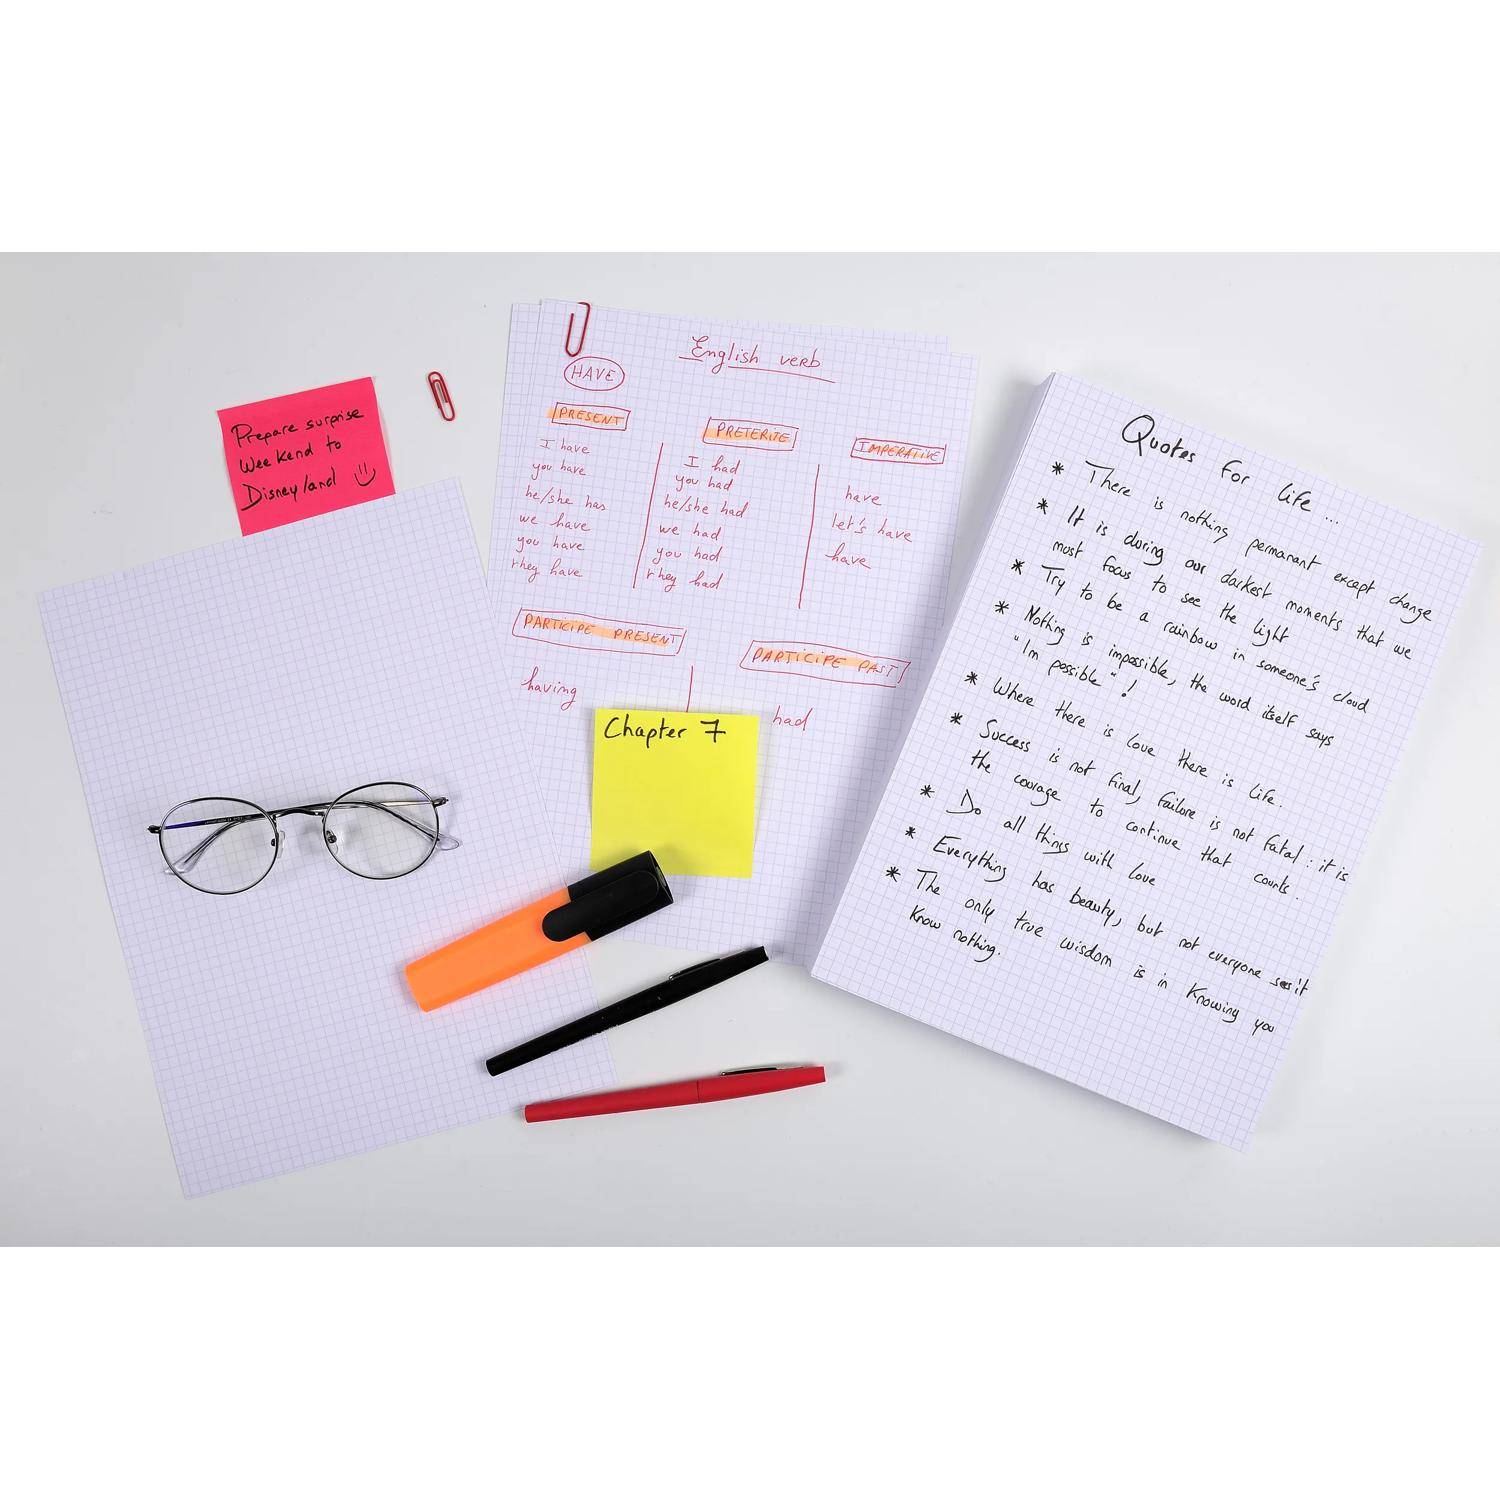 Prepare surprise
Weekend to
Disneyland
English verb
HAVE
PRESENT
I have
you have
he/she has
we have
you have
they have
PRETERITE
I had
you had
he/she had
we had
you had
they had
IMPERATIVE
have
let's have
have
PARTICIPE PRESENT
having
PARTICIPE PAST
had
Chapter 7
Quotes for life...
* There is nothing permanant except change
* It is during our darkest moments that we
must focus to see the light
* Try to be a rainbow in someone's cloud
* Nothing is impossible, the word itself says
"Im possible"!
* Where there is love there is life.
* Success is not final, failure is not fatal: it is
the courage to continue that counts.
* Do all things with love
* Everything has beauty, but not everyone sees it
* The only true wisdom is in knowing you
know nothing.